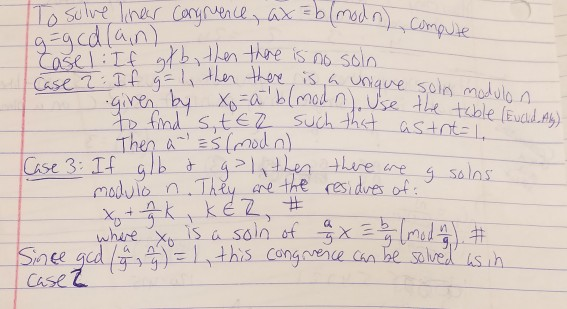 To solve linear congruence, ax ≡ b (mod n), compute
g = gcd(a,n)
Case 1: If g∤b, then there is no soln
Case 2: If g=1, then there is a unique soln modulo n
· given by x₀=a⁻¹b(mod n). Use the table (Euclid. Alg)
to find s,t∈ℤ such that as+nt=1.
Then a⁻¹ ≡ s (mod n)
Case 3: If g|b & g>1, then there are g solns
modulo n. They are the residues of:
x₀ + n/g k, k∈ℤ, #
where x₀ is a soln of a/g x ≡ b/g (mod n/g). #
Since gcd(a/g, n/g)=1, this congruence can be solved as in
case 2